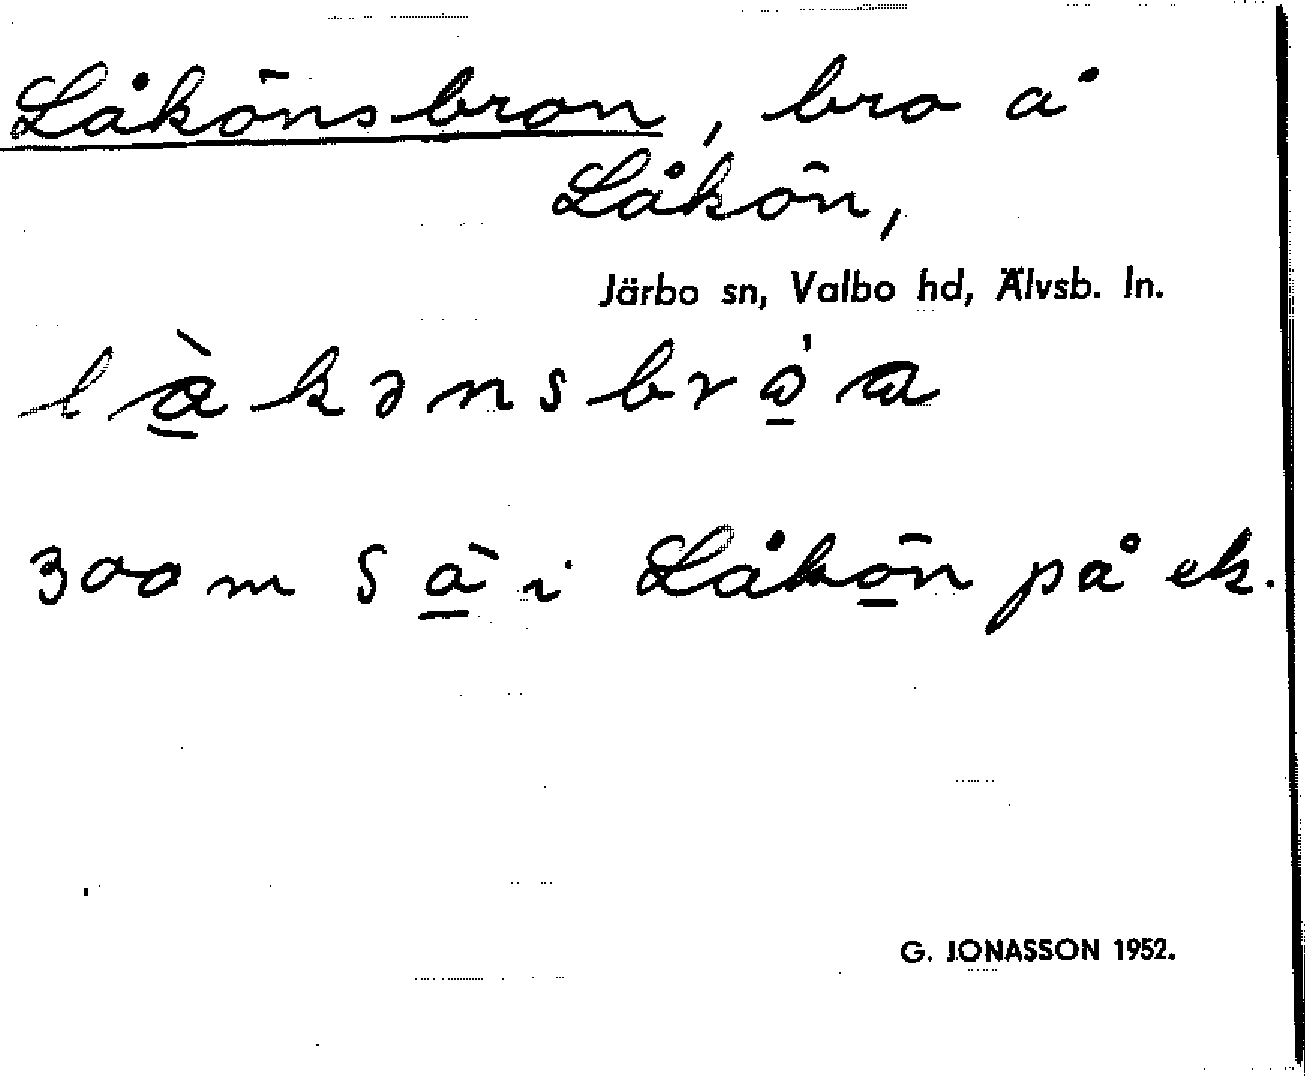 Låkönsbron, bro å
Låkön,
Järbo sn, Valbo hd, Älvsb. ln.
300 m S ö i Låkön på ek.
G. JONASSON 1952.